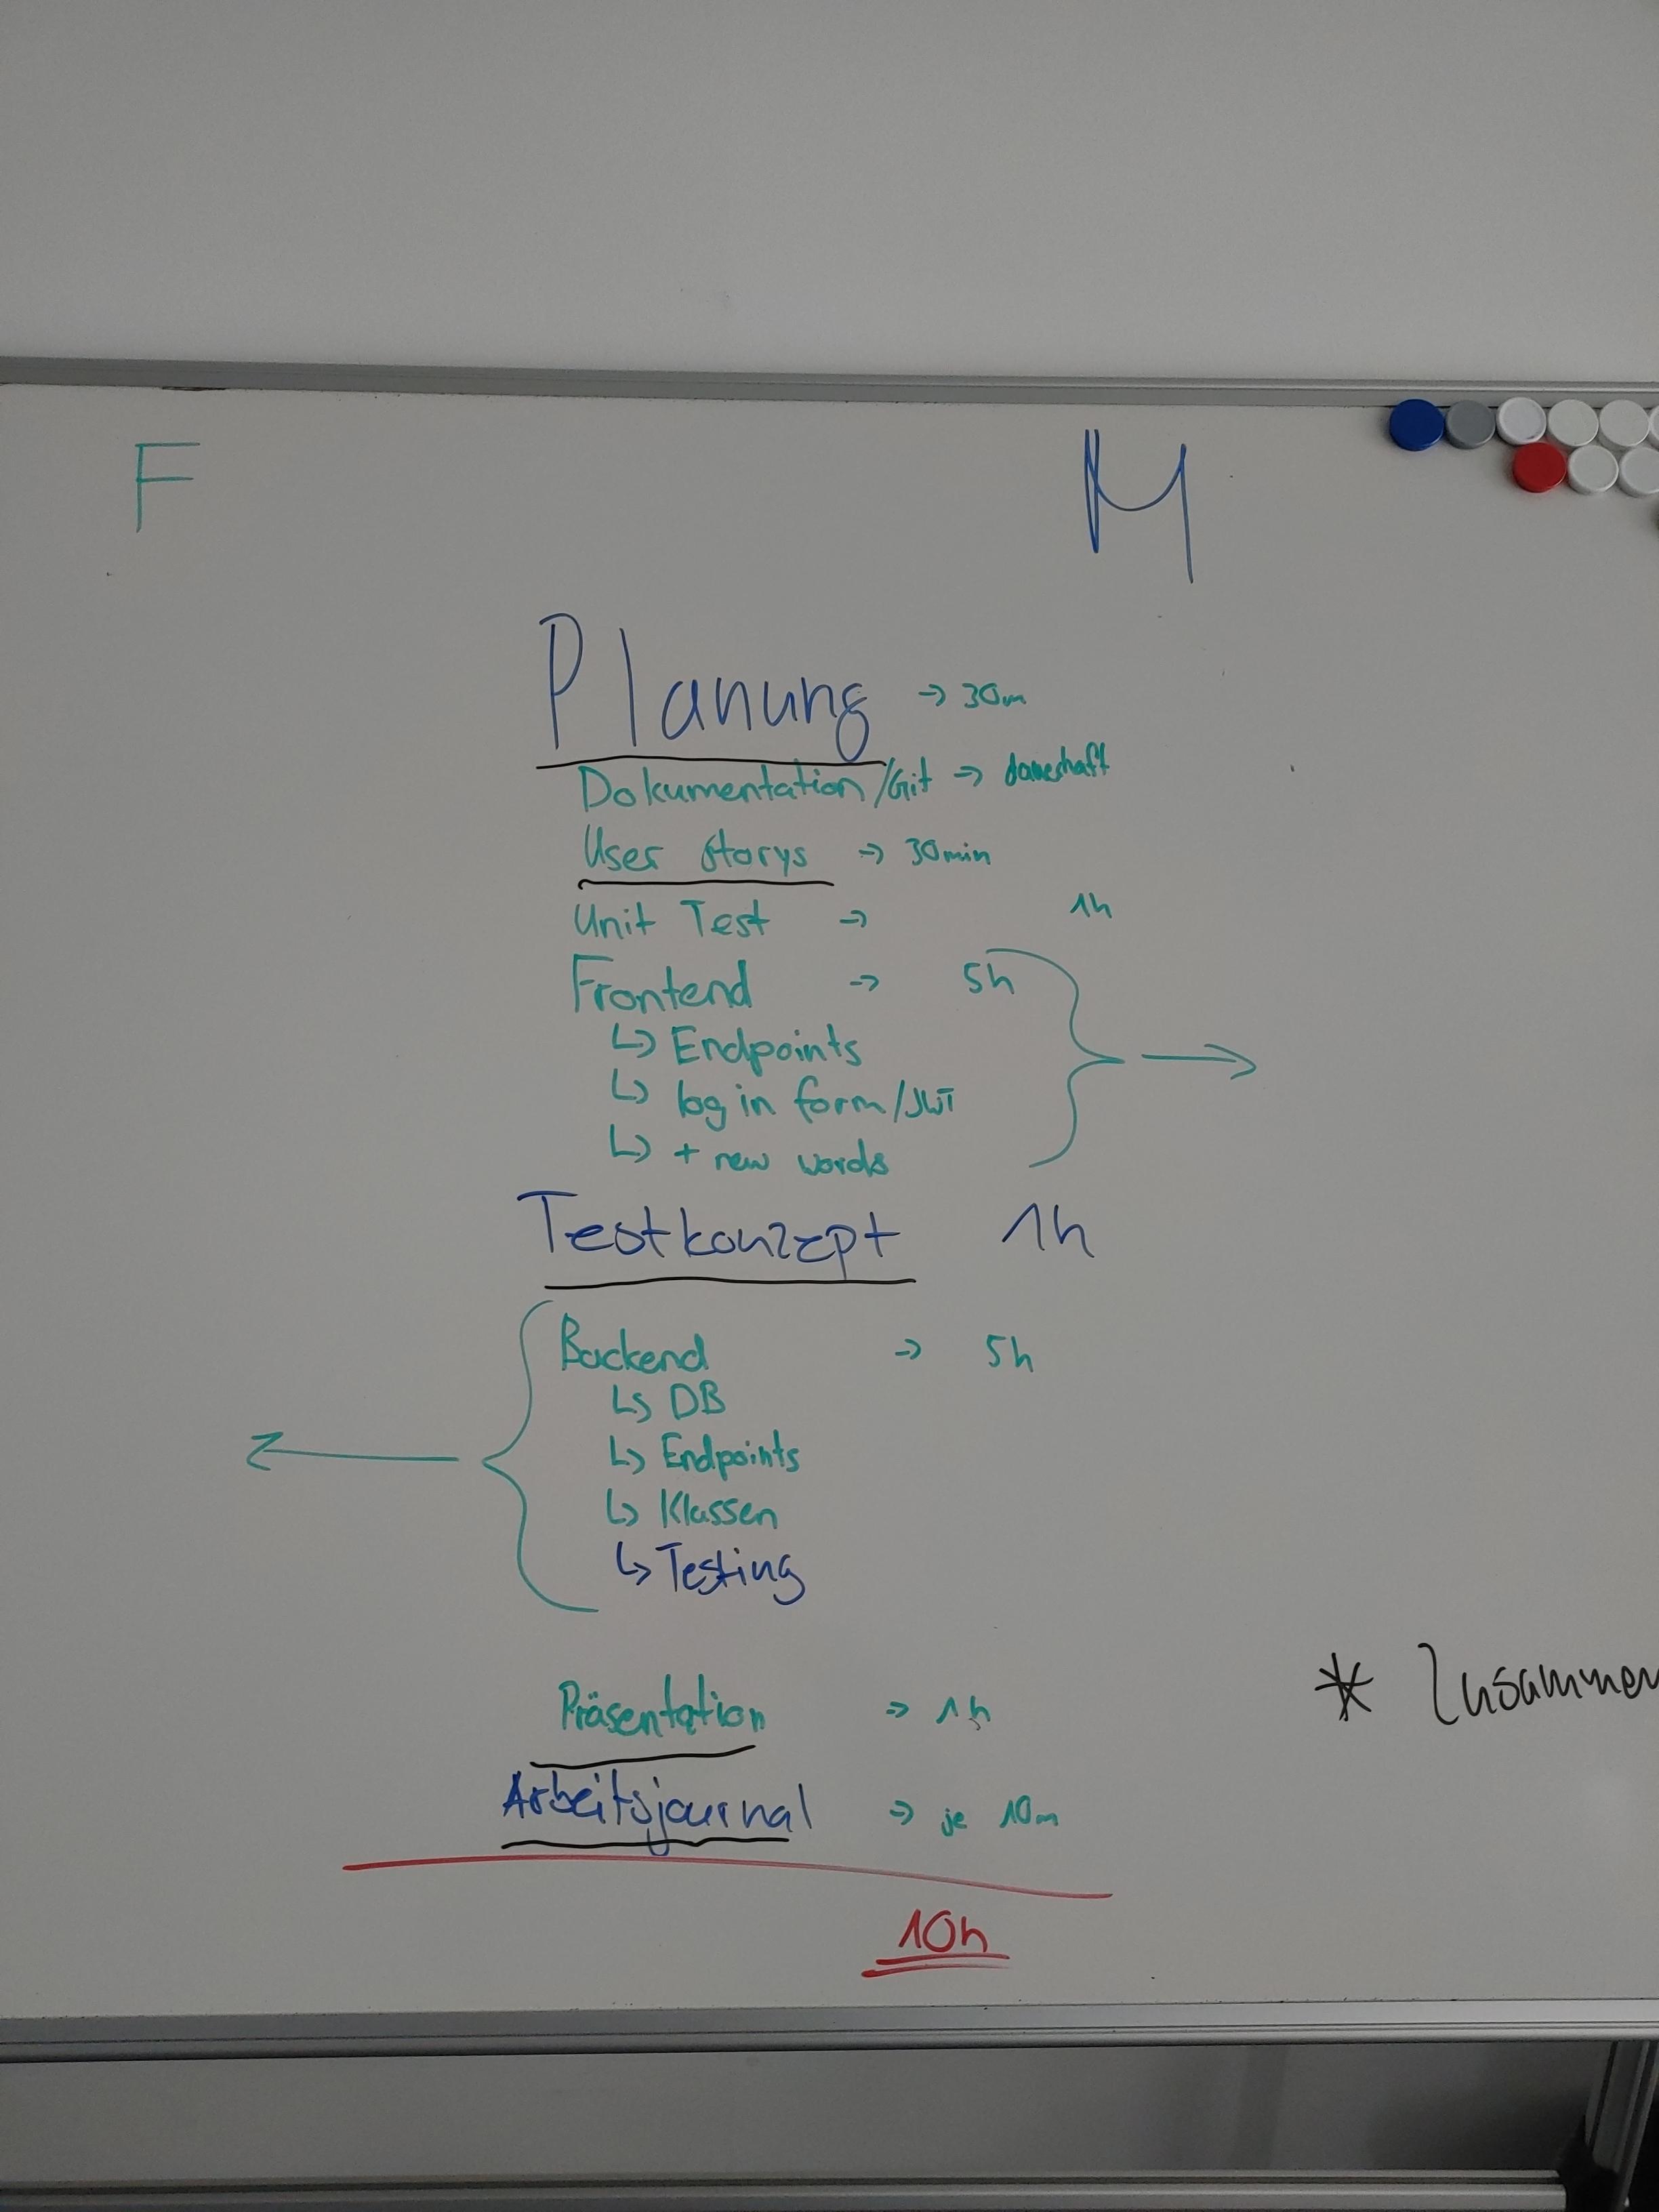 F
M
Planung -> 30m
Dokumentation/Git -> dauerhaft
User Storys -> 30min
Unit Test -> 1h
Frontend -> 5h
↳ Endpoints
↳ log in form/JWT
↳ + new words
Testkonzept 1h
Backend -> 5h
↳ DB
↳ Endpoints
↳ Klassen
↳ Testing
* Zusammen
Präsentation => 1h
Arbeitsjournal => je 10m
10h